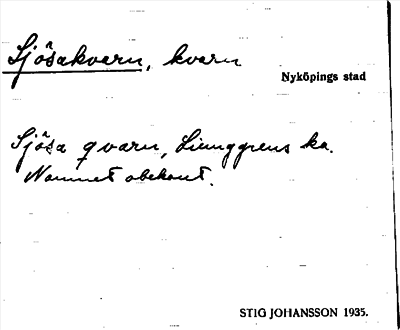 Sjösakvarn, kvarn
Nyköpings stad
Sjösa qvarn, Liunggrens ka.
Namnet obekant.
STIG JOHANSSON 1935.